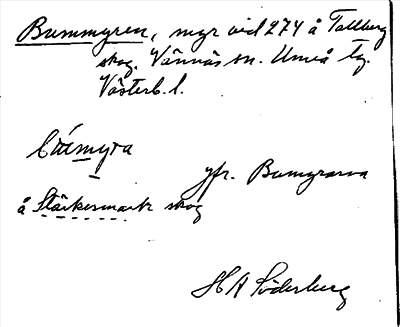 Bummyren, myr vid 274 å Tallberg
skog. Vännäs sn. Umeå lg.
Västerb. l.
jfr. Bumyrarna
å Stärkesmark skog
H A Söderberg